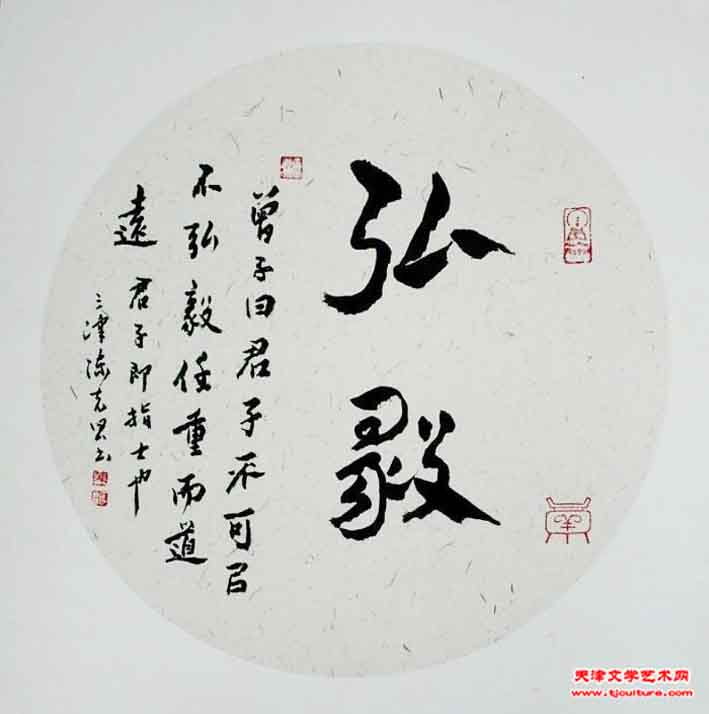 弘毅
曾子曰君子不可㠯
不弘毅任重而道
遠 君子即指士也
三津陈克思书
天津文学艺术网
www.tjculture.com